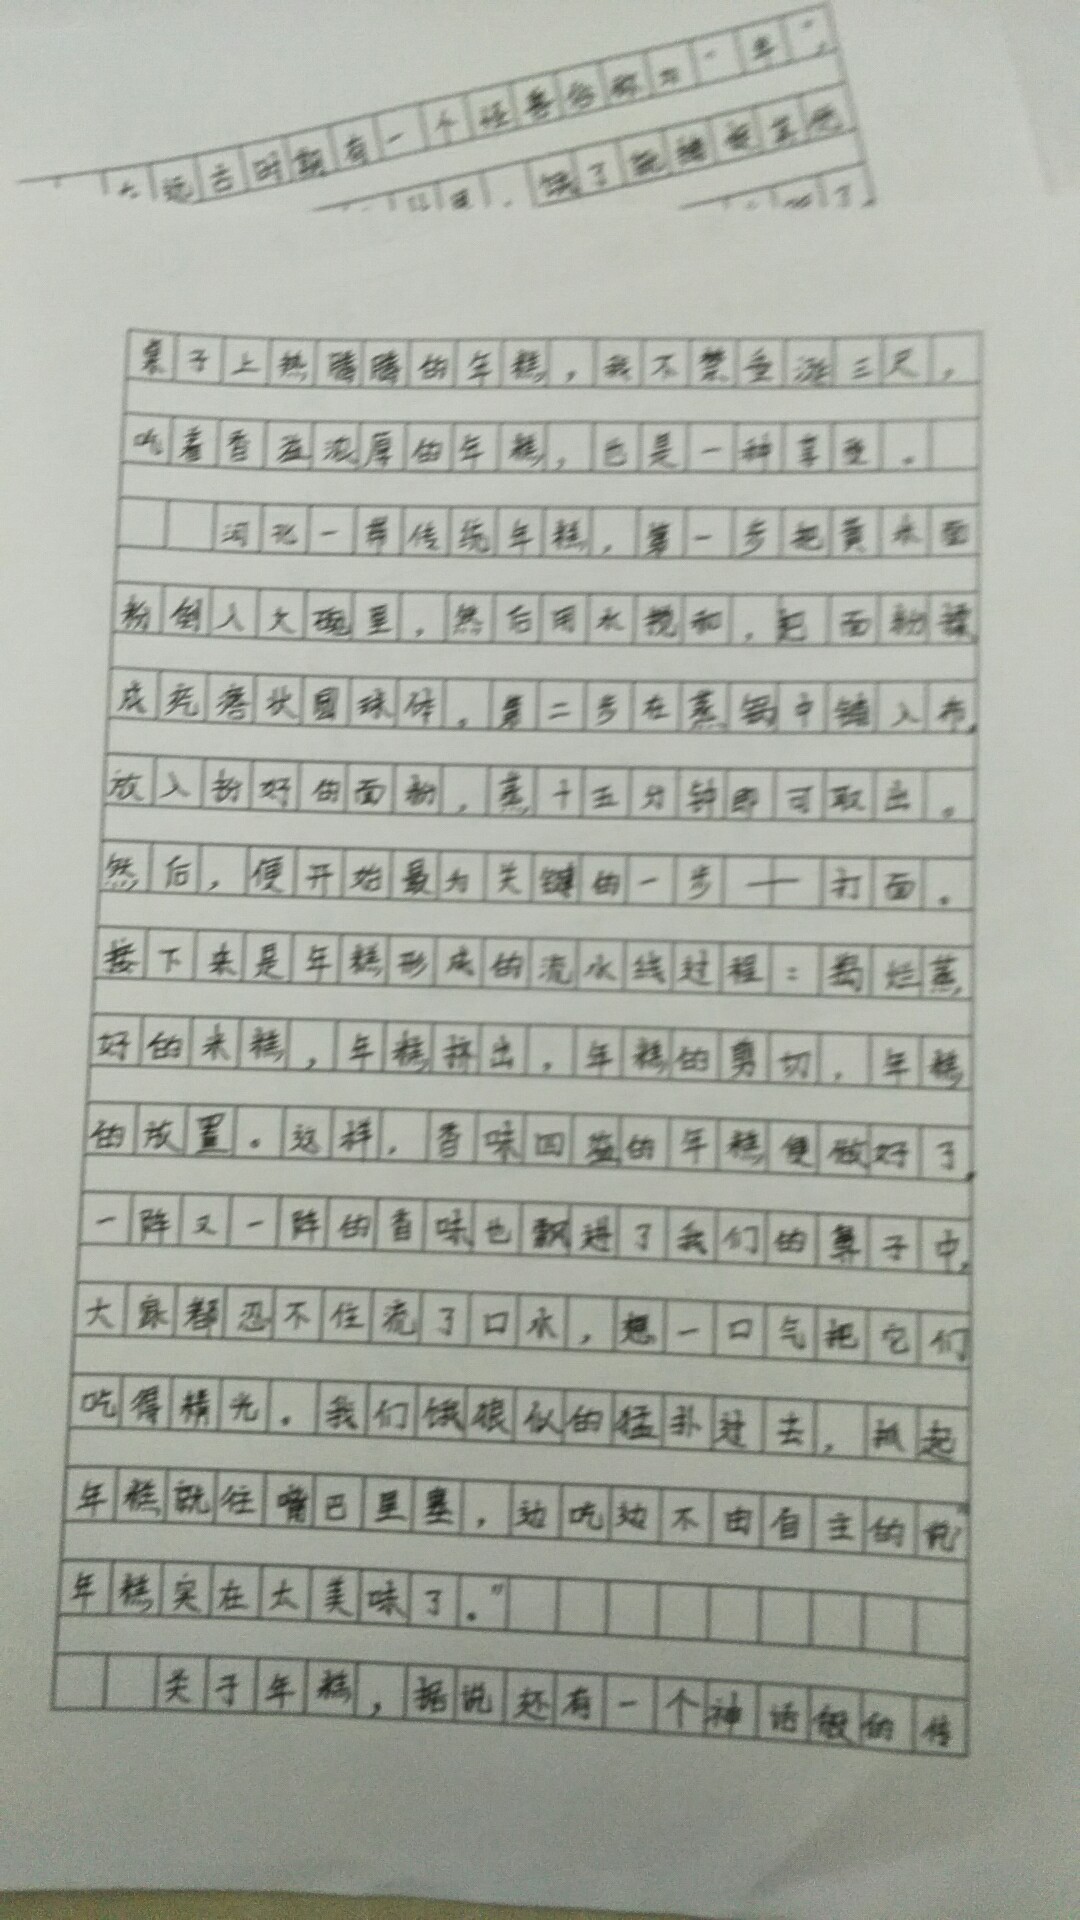 远古时期有一个怪兽俗称为“年”,
饿了就捕捉其他
了,
桌子上热腾腾的年糕,我不禁垂涎三尺,
吃着香益浓厚的年糕,也是一种享受。
河北一带传统年糕,第一步把黄米面
粉倒入大碗里,然后用水搅和,把面粉揉
成疙瘩状圆球体。第二步在蒸锅中铺入布,
放入粉好的面粉,蒸十五分钟即可取出。
然后,便开始最为关键的一步——打面。
接下来是年糕形成的流水线过程:捣烂蒸
好的米糕,年糕挤出,年糕的剪切,年糕
的放置。这样,香味四溢的年糕便做好了,
一阵又一阵的香味也飘进了我们的鼻子中,
大家都忍不住流了口水,想一口气把它们
吃得精光。我们饿狼似的猛扑过去,抓起
年糕就往嘴巴里塞,边吃边不由自主的说“
年糕实在太美味了。”
关于年糕,据说还有一个神话般的传